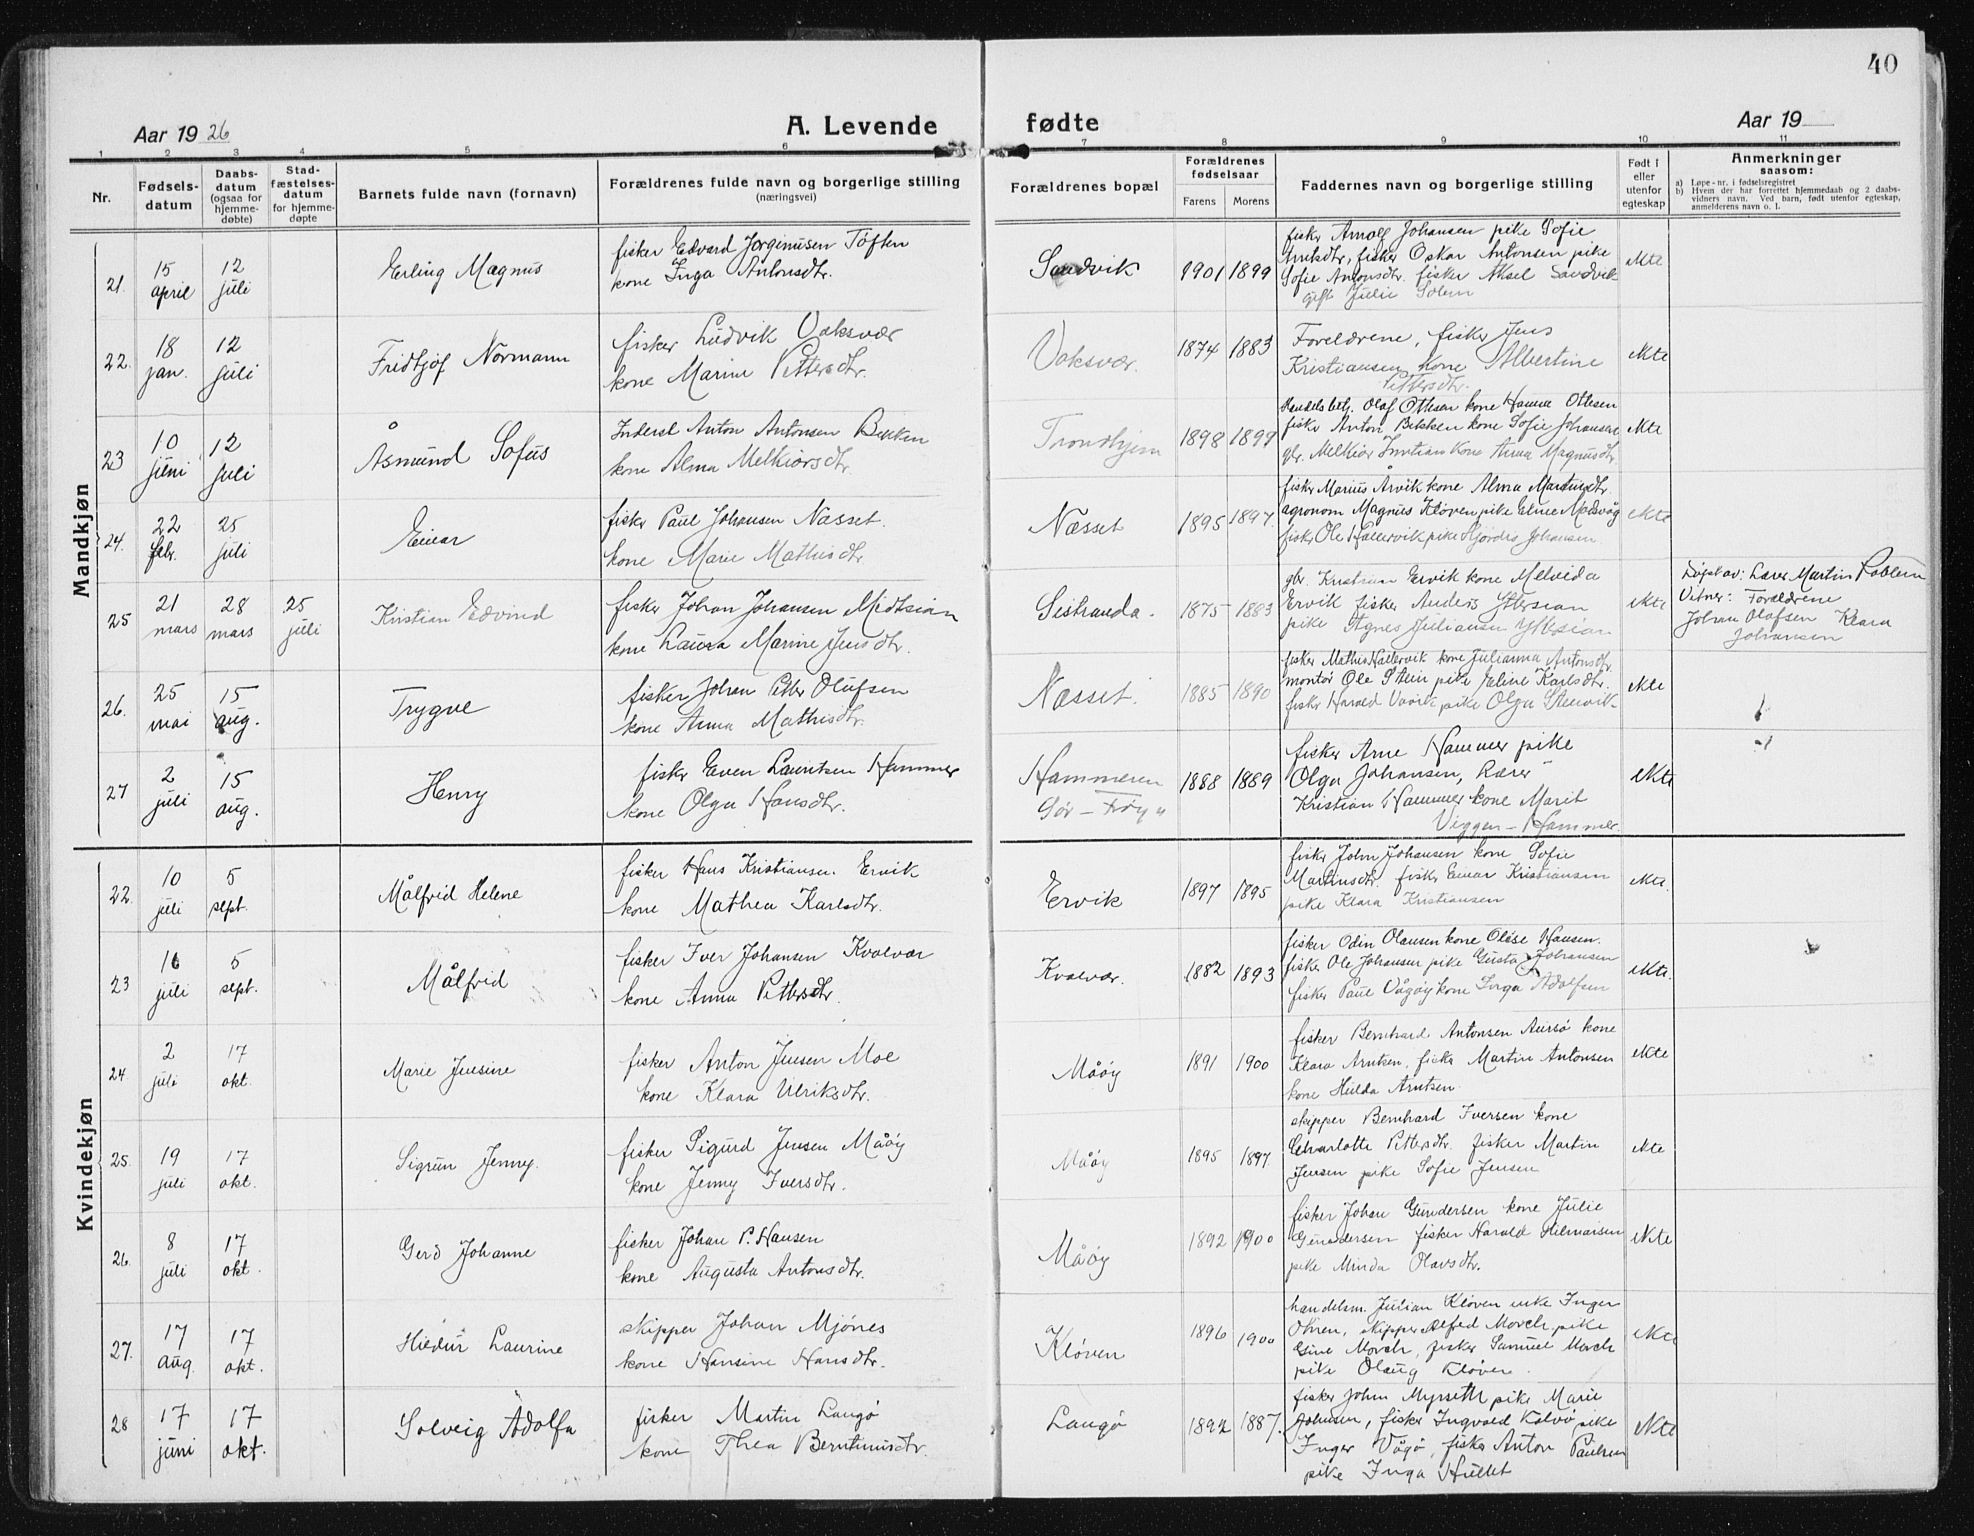 40
Aar 1926
A. Levende fødte
Aar 19
1 2 3 4 5 6 7 8 9 10 11
Nr.
Fødsels-
datum
Daabs-
datum
(ogsaa for
hjemme-
døbte)
Stad-
fæstelses-
datum
for hjemme-
døpte
Barnets fulde navn (fornavn)
Forældrenes fulde navn og borgerlige stilling
(næringsvei)
Forældrenes bopæl
Forældrenes
fødselsaar
Farens Morens
Faddernes navn og borgerlige stilling
Født i
eller
utenfor
egteskap
Anmerkninger
saasom:
a) Løpe-nr. i fødselsregistret
b) Hvem der har forrettet hjemmedaab og 2 daabs-
vidners navn. Ved barn, født utenfor egteskap,
anmelderens navn o. l.
Mandkjøn
21. 15 april 12 juli Erling Magnus
fisker Edvard Jørginusen Tøften
kone Inga Antonsdtr.
Sandvik 1901 1899
fisker Arnolf Johansen pike Sofie
Arntsdtr, fisker Oskar Antonsen pike
Sofie Antonsdtr. fisker Aksel Sandvik
gift Julie Solem
ekte
22. 18 jan. 12 juli Fridtjof Normann
fisker Ludvik Vaksvær
kone Marine Pettersdtr.
Vaksvær. 1874 1883
Foreldrene, fisker Jens
Kristiansen kone Albertine
Pettersdtr.
ekte
23 10 juni 12 juli Åsmund Sofus
Anton Antonsen Bekken
kone Alma Melkiorsdtr.
Trondhjem 1898 1899
Handelsbetj. Olaf Ottesen kone Hanna Ottesen
fisker Anton Bekken kone Sofie Johansen
gbr. Melkior kone Anna Magnusdtr.
ekte
24. 22 febr. 25 juli Einar
fisker Paul Johansen Næsset.
kone Marie Mathisdtr.
Næsset 1895 1897.
fisker Marius Årvik kone Alma Martinsdtr.
agronom Magnus Kløven pike Eline Madsvåg
fisker Ole Hallervik pike Hjørdis Johansen
ekte
25 21 mars 28 mars 25 juli Kristian Edvind
fisker Johan Johansen Midtsian
kone Laura Marine Jensdtr.
Sistranda. 1875 1883
gbr. Kristian Ervik kone Melvida
Ervik fisker Anders Yttersian
pike Agnes Juliansen Yttersian
ekte
Døpt av: Lærer Martin
Vitner: Foreldrene
Johan Olafsen Klara
Johansen
26. 25 mai 15 aug. Trygve
fisker Johan Petter Olufsen
kone Anna Mathisdtr.
Næsset. 1885 1890
fisker Mathis Hallervik kone Julianna Antonsdtr.
montør Ole Stein pike Eline Karlsdtr.
fisker Harald pike Olga Stenvik
ekte
27 2 juli 15 aug. Henry
fisker Even Lauritsen Hammer
kone Olga Hansdtr.
Hammeren
Sør-Frøya
1888 1889
fisker Arne Hammer pike
Olga Johansen, Lærer
Kristian Hammer kone Marit
Viggen-Hammer.
ekte
Kvindekjøn
22. 10 juli 5 sept. Målfrid Helene
fisker Hans Kristiansen Ervik
kone Mathea Karlsdtr.
Ervik 1897 1895
fisker John Johansen kone Sofie
Martinsdtr. fisker Einar Kristiansen
pike Klara Kristiansen
ekte.
23 16 juli 5 sept. Målfrid
fisker Iver Johansen Kvalvær
kone Anna Pettersdtr.
Kvalvær. 1882 1893
fisker Odin Olausen kone Oluse Hansen.
fisker Ole Johansen pike Gusta Johansen
fisker Paul Vågøy kone Inga Adolfsen
ekte.
24 2 juli 17 okt. Marie Jensine
fisker Anton Jensen Moe
kone Klara Ulriksdtr.
Måøy 1891 1900
fisker Bernhard Antonsen Aursø kone
Klara Arntsen, fisker Martin Antonsen
kone Hulda Arntsen
ekte
25. 19 juli 17 okt. Sigrun Jenny.
fisker Sigurd Jensen Måøy
kone Jenny Iversdtr.
Måøy 1895 1897
skipper Bernhard Iversen kone
Charlotte Pettersdtr. fisker Martin
Jensen pike Sofie Jensen
ekte
26. 8 juli 17 okt. Gerd Johanne
fisker Johan P. Hansen
kone Augusta Antonsdtr.
Måøy 1892 1900
fisker Johan Gundersen kone Julie
Gundersen fisker Harald Hilmarsen
pike Minda Olavsdtr.
ekte
27. 17 aug. 17 okt. Hildur Laurine
skipper Johan Mjønes
kone Hansine Hansdtr.
Kløven 1896 1900
handelsm. Julian Kløven enke Inger
skipper Alfred Morch pike
Gine Morch, fisker Samuel Morch
pike Olaug Kløven.
ekte
28 17 juni 17 okt. Solveig Adolfa
fisker Martin Langø
kone Thea Berntinusdtr.
Langø 1892 1887.
fisker John Myrseth pike Marie
Johnsen, fisker Ingvald Kalvø pike
Inger Vågø, fisker Anton Paulsen
pike Inga Hullet
ekte